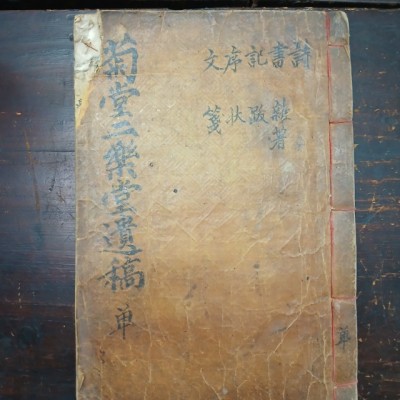 詩
書 雜著
記 跋
序 狀
文 箋
菊堂二樂堂遺稿